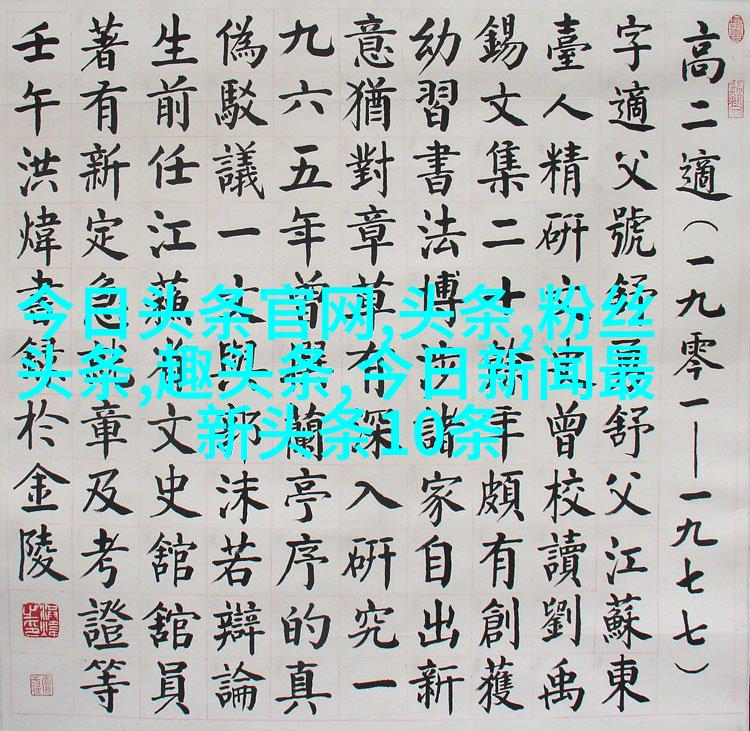 高二適（一九零一——一九七七）
字適父號舒父江蘇東
臺人精研曾校讀劉禹
錫文集二十餘年頗有創獲
幼習書法博涉諸家自出新
意猶對章草有深入研究一
九六五年曾撰蘭亭序的真
偽駁議一文與郭沫若辯論
生前任江蘇省文史舘舘員
著有新定急就章及考證等
壬午洪煒書錄於金陵
今日头条官网,头条,粉丝
头条,趣头条,今日新闻最
新头条10条